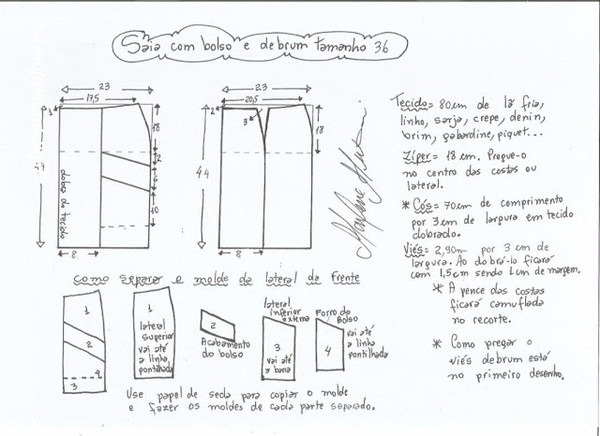 Saia com bolso e debrum tamanho 36
23
17,5
1
18
2
10
44
dobra do tecido
8
23
20,5
2
3
18
44
8
Marlene Mukai
Tecido = 80cm de lã fria,
linho, sarja, crepe, denin,
brim, gabardine, piquet...
Zíper = 18cm. Pregue-o
no centro das costas ou
lateral.
* Cós = 70cm de comprimento
por 3cm de largura em tecido
dobrado.
Viés = 2,90m por 3cm de
largura. Ao dobrá-lo ficará
com 1,5cm sendo 1cm de margem.
* A pence das costas
ficará camuflada
no recorte.
* Como pregar o
viés debrum está
no primeiro desenho.
como separar o molde da lateral da frente
1
2
4
3
1
lateral
superior
vai até
a linha
pontilhada
2
Acabamento
do bolso
lateral
inferior
externa
3
vai até
a barra
Forro do
Bolso
4
vai até
a linha
pontilhada
Use papel de seda para copiar o molde
e fazer os moldes de cada parte separado.